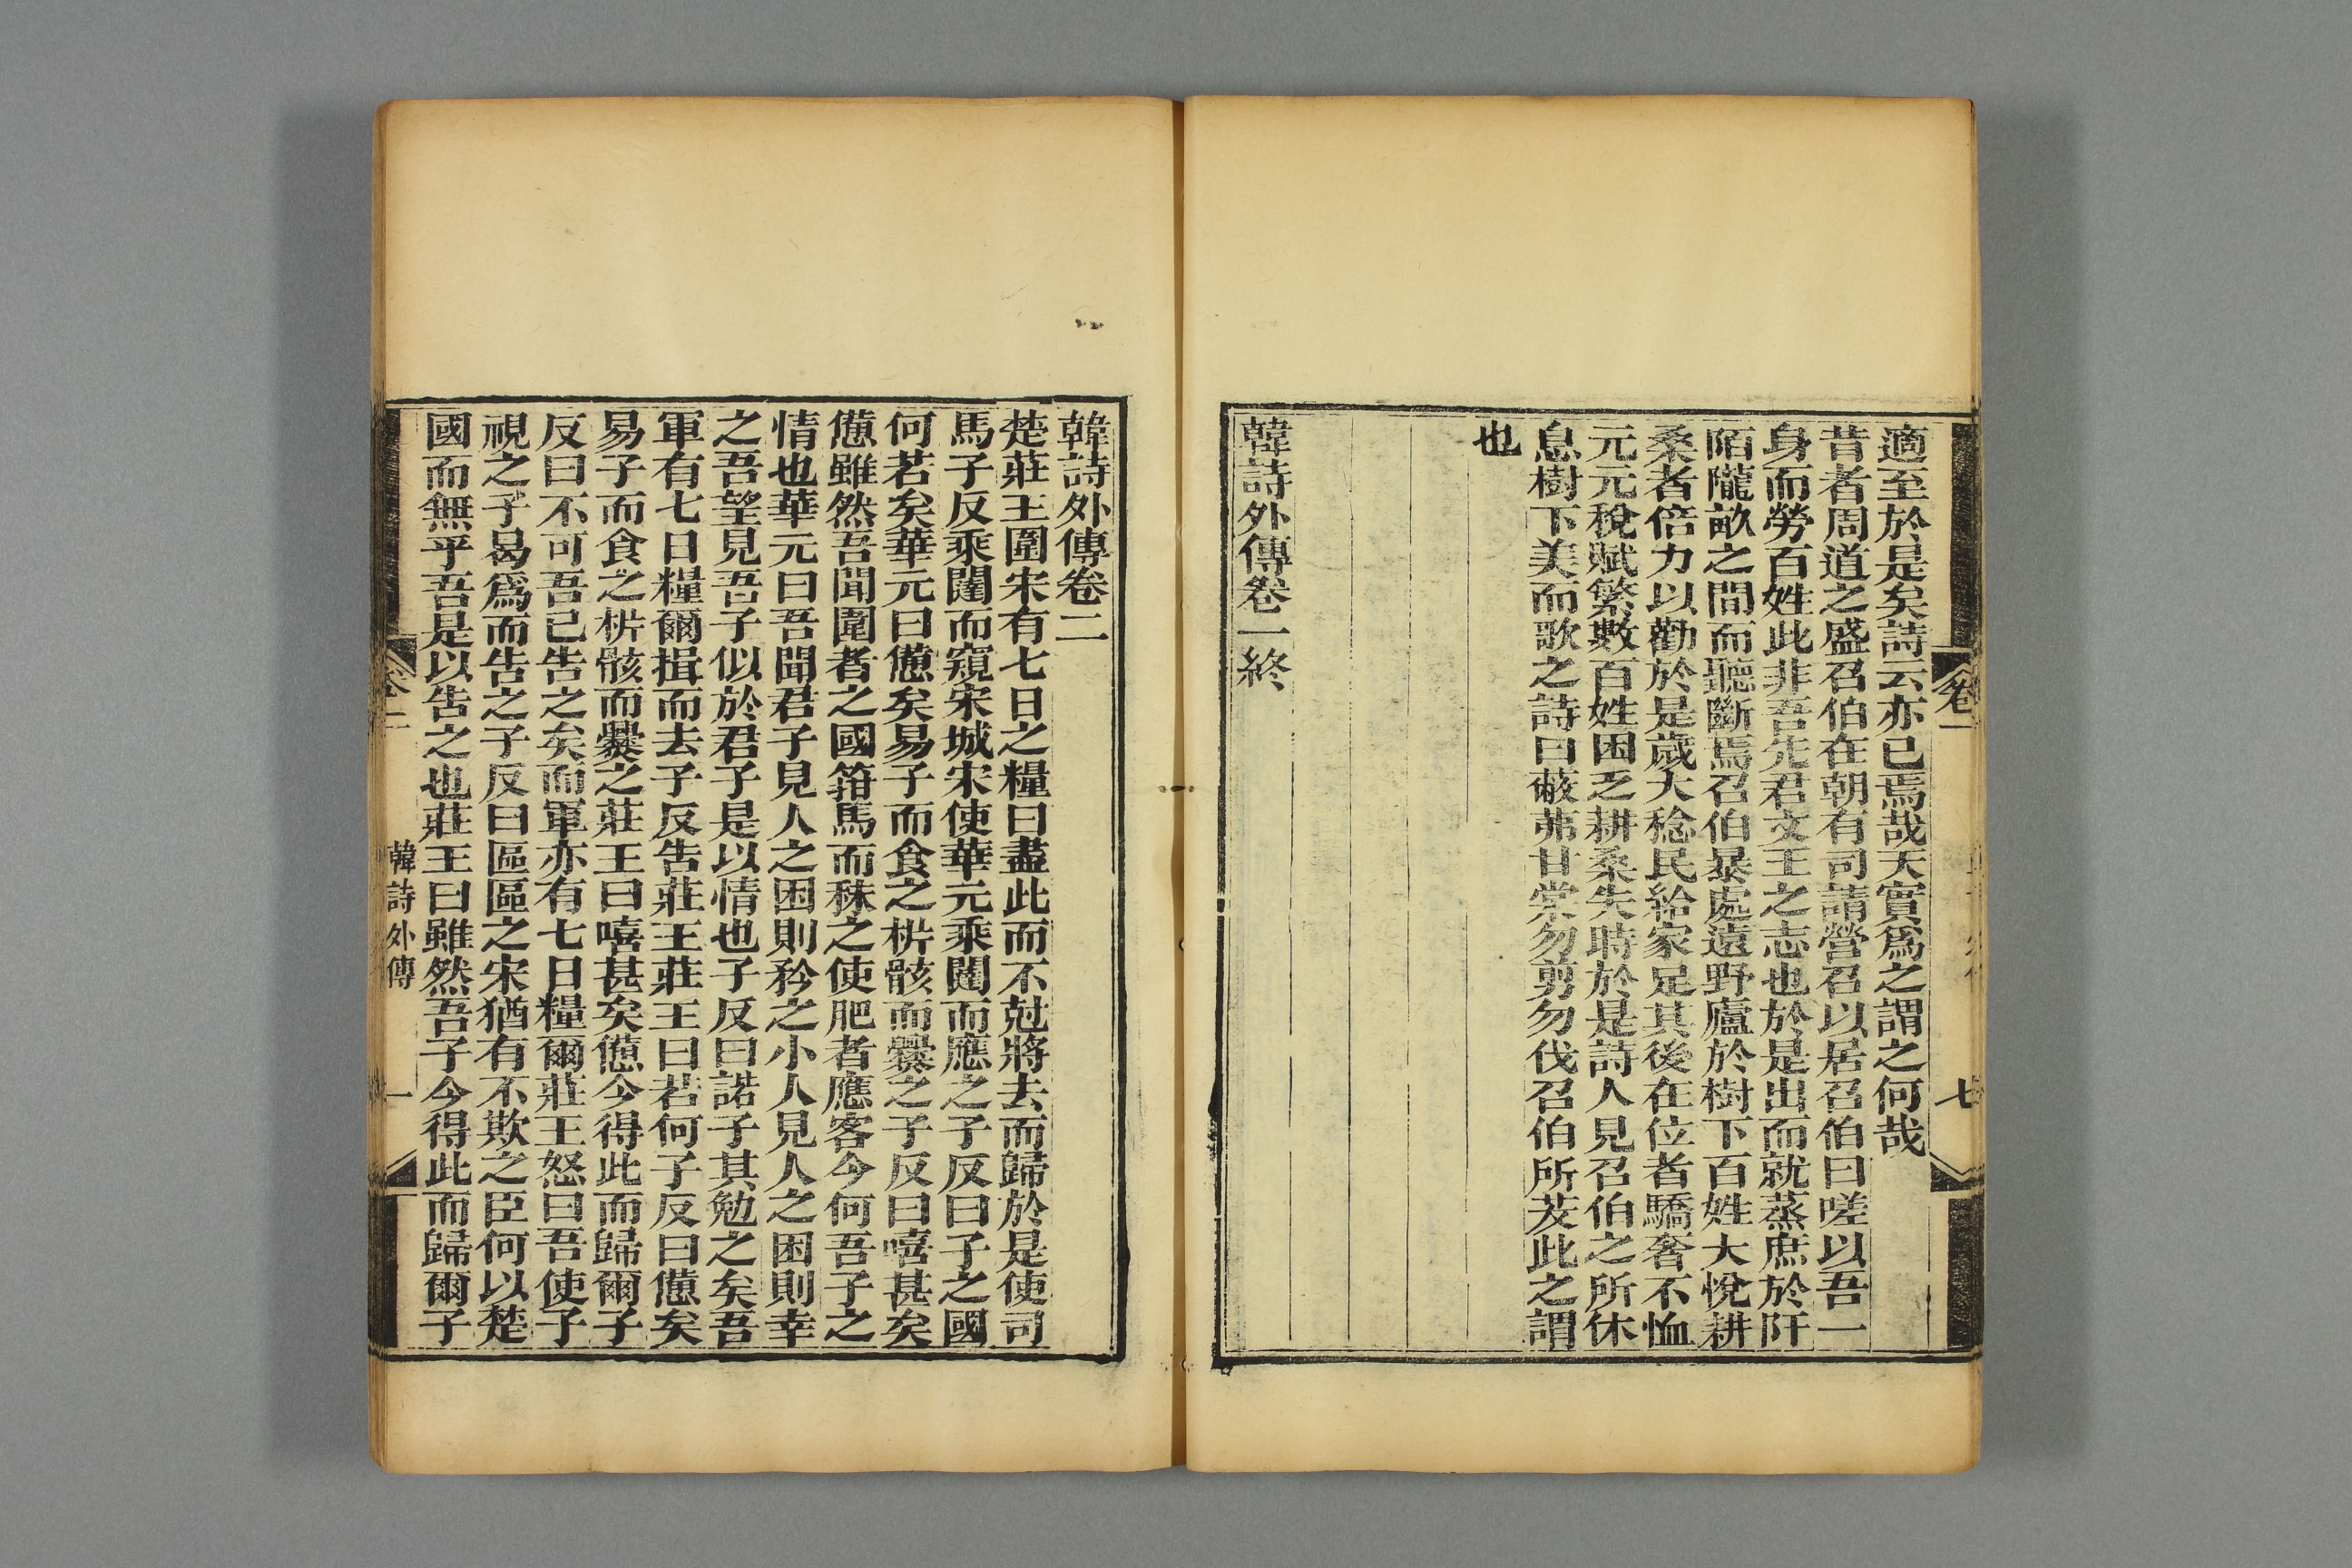 適至於是矣詩云亦已焉哉天實爲之謂之何哉
昔者周道之盛召伯在朝有司請營召以居召伯曰嗟以吾一
身而勞百姓此非吾先君文王之志也於是出而就蒸庶於阡
陌隴畝之間而聽斷焉召伯暴處遠野廬於樹下百姓大悅耕
桑者倍力以勸於是歲大稔民給家足其後在位者驕奢不恤
元元稅賦繁數百姓困乏耕桑失時於是詩人見召伯之所休
息樹下美而歌之詩曰蔽茀甘棠勿剪勿伐召伯所茇此之謂
也
韓詩外傳卷一終
卷一
七
韓詩外傳卷二
楚莊王圍宋有七日之糧曰盡此而不尅將去而歸於是使司
馬子反乘闉而窺宋城宋使華元乘闉而應之子反曰子之國
何若矣華元曰憊矣易子而食之析骸而爨之子反曰嘻甚矣
憊雖然吾聞圍者之國箝馬而秣之使肥者應客今何吾子之
情也華元曰吾聞君子見人之困則矜之小人見人之困則幸
之吾望見吾子似於君子是以情也子反曰諾子其勉之矣吾
軍有七日糧爾揖而去子反告莊王莊王曰若何子反曰憊矣
易子而食之析骸而爨之莊王曰嘻甚矣憊今得此而歸爾子
反曰不可吾已告之矣而軍亦有七日糧爾莊王怒曰吾使子
視之子曷爲而告之子反曰區區之宋猶有不欺之臣何以楚
國而無乎吾是以告之也莊王曰雖然吾子今得此而歸爾子
卷二
韓詩外傳
一